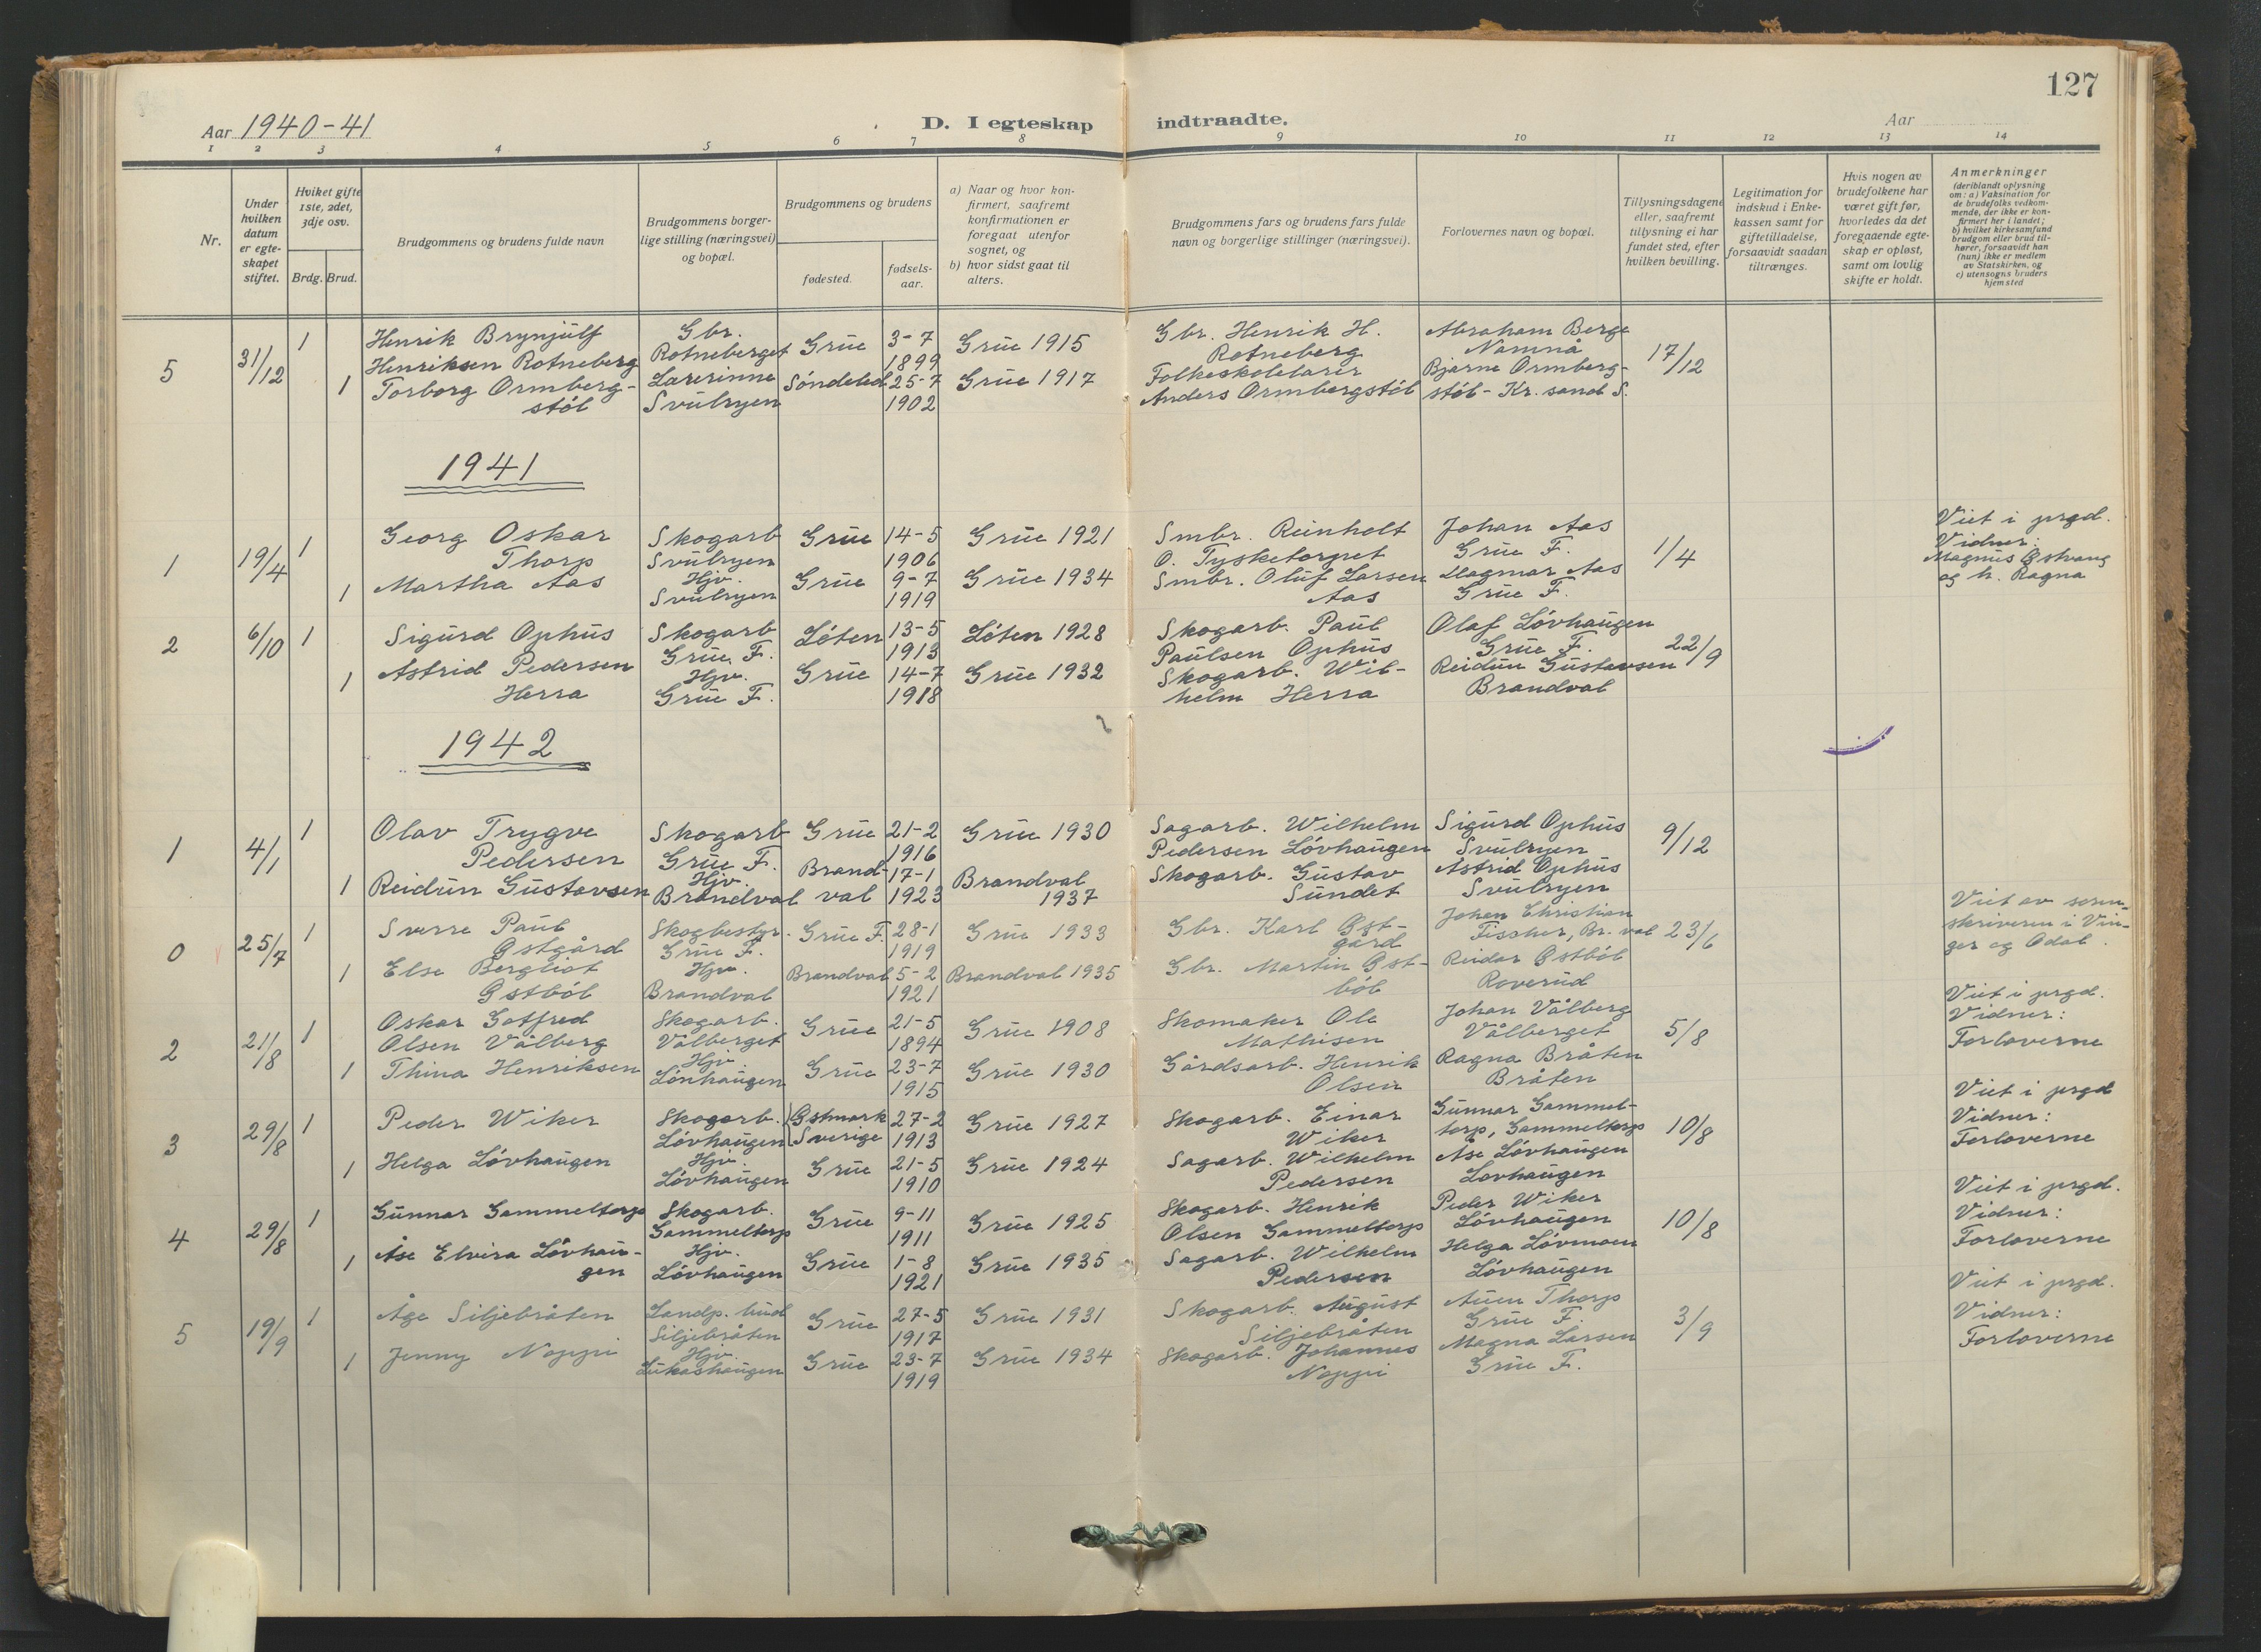 127
Aar 1940-41
D. I egteskap indtraadte.
Aar
1 2 3 4 5 6 7 8 9 10 11 12 13 14
Nr.
Under
hvilken
datum
er egte-
skapet
stiftet.
Hviket gifte
1ste, 2det,
3dje osv.
Brdg. Brud.
Brudgommens og brudens fulde navn
Brudgommens borger-
lige stilling (næringsvei)
og bopæl.
Brudgommens og brudens
fødested.
fødsels-
aar.
a) Naar og hvor kon-
firmert, saafremt
konfirmationen er
foregaat utenfor
sognet, og
b) hvor sidst gaat til
alters.
Brudgommens fars og brudens fars fulde
navn og borgerlige stillinger (næringsvei).
Forlovernes navn og bopæl.
Tillysningsdagene
eller, saafremt
tillysning ei har
fundet sted, efter
hvilken bevilling.
Legitimation for
indskud i Enke-
kassen samt for
giftetilladelse,
forsaavidt saadan
tiltrænges.
Hvis nogen av
brudefolkene har
været gift før,
hvorledes da det
foregaaende egte-
skap er opløst,
samt om lovlig
skifte er holdt.
Anmerkninger
(deriblandt oplysning
om: a) Vaksination for
de brudefolks vedkom-
mende, der ikke er kon-
firmert her i landet;
b) hvilket kirkesamfund
brudgom eller brud til-
hører, forsaavidt han
(hun) ikke er medlem
av Statskirken, og
c) utensogns bruders
hjemsted
5 31/12 1
Henrik Brynjulf
Henriksen Rotneberg
Gbr.
Rotneberget
Grue
3-7
1899
Grue 1915
Gbr. Henrik H.
Rotneberg
Abraham Berge
Namnå
17/12
1
Torborg Ormberg-
støl
Lærerinne
Svulryen
Søndeled
25-7
1902
Grue 1917
Folkeskolelærer
Anders Ormbergstøl
Bjarne Ormberg-
støl - Kr. sand S.
1941
1 19/4 1
Georg Oskar
Thorp
Skogarb
Svulryen
Grue
14-5
1906
Grue 1921
Smbr. Reinholt
O. Tysketorpet
Johan Aas
Grue F.
1/4
Viet i prgd.
Vidner:
Magnus Østvang
og h. Ragna
1
Martha Aas
Hjv.
Svulryen
Grue
9-7
1919
Grue 1934
Smbr. Oluf Larsen
Aas
Dagmar Aas
Grue F.
2 6/10 1
Sigurd Ophus
Skogarb
Grue F.
Løten
13-5
1913
Løten 1928
Skogarb. Paul
Paulsen Ophus
Olaf Løvhaugen
Grue F.
22/9
1
Astrid Pedersen
Herra
Hjv.
Grue F.
Grue
14-7
1918
Grue 1932
Skogarb. Wil-
helm Herra
Reidun Gustavsen
Brandval
1942
1 4/1 1
Olav Trygve
Pedersen
Skogarb
Grue F.
Grue
21-2
1916
Grue 1930
Sagarb. Wilhelm
Pedersen Løvhaugen
Sigurd Ophus
Svulryen
9/12
1
Reidun Gustavsen
Hjv.
Brandval
Brand-
val
17-1
1923
Brandval
1937
Skogarb. Gustav
Sundet
Astrid Ophus
Svulryen
0 25/7 1
Sverre Paul
Østgård
Skogbestyr.
Grue F.
Grue F.
28-1
1919
Grue 1933
Gbr. Karl Øst-
gård
Johan Christian
Fischer, Br. val
23/6
Viet av soren-
skriveren i Vin-
ger og Odal.
1
Else Bergliot
Østbøl
Hjv.
Brandval
Brandval
5-2
1921
Brandval 1935
Gbr. Martin Øst-
bøl
Reidar Østbøl
Roverud
2 21/8 1
Oskar Gotfred
Olsen Vålberg
Skogarb.
Vålberget
Grue
21-5
1894
Grue 1908
Skomaker Ole
Mathisen
Johan Vålberg
Vålberget
5/8
Viet i prgd.
Vidner:
Forloverne
1
Thina Henriksen
Hjv.
Lønhaugen
Grue
23-7
1915
Grue 1930
Gårdsarb. Henrik
Olsen
Ragna Bråten
Bråten
3 29/8 1
Peder Wiker
Skogarb.
Løvhaugen
Østmark
Sverige
27-2
1913
Grue 1927
Skogarb. Einar
Wiker
Gunnar Gammel-
torp, Gammeltorp
10/8
Viet i prgd
Vidner:
Forloverne
1
Helga Løvhaugen
Hjv.
Løvhaugen
Grue
21-5
1910
Grue 1924
Sagarb. Wilhelm
Pedersen
Åse Løvhaugen
Løvhaugen
4 29/8 1
Gunnar Gammeltorp
Skogarb.
Gammeltorp
Grue
9-11
1911
Grue 1925
Skogarb. Henrik
Olsen Gammeltorp
Peder Wiker
Løvhaugen
10/8
Viet i prgd.
Vidner:
Forloverne
1
Åse Elvira Løvhau-
gen
Hjv.
Løvhaugen
Grue
1-8
1921
Grue 1935
Sagarb. Wilhelm
Pedersen
Helga Løvmoen
Løvhaugen
5 19/9 1
Åge Siljebråten
Landp. bud
Siljebråten
Grue
27-5
1917
Grue 1931
Skogarb. August
Siljebråten
Thorp
Grue F.
3/9
Viet i prgd.
Vidner:
Forloverne
1
Jenny Noppi
Hjv.
Lukashaugen
Grue
23-7
1919
Grue 1934
Skogarb. Johannes
Noppi
Magna Larsen
Grue F.